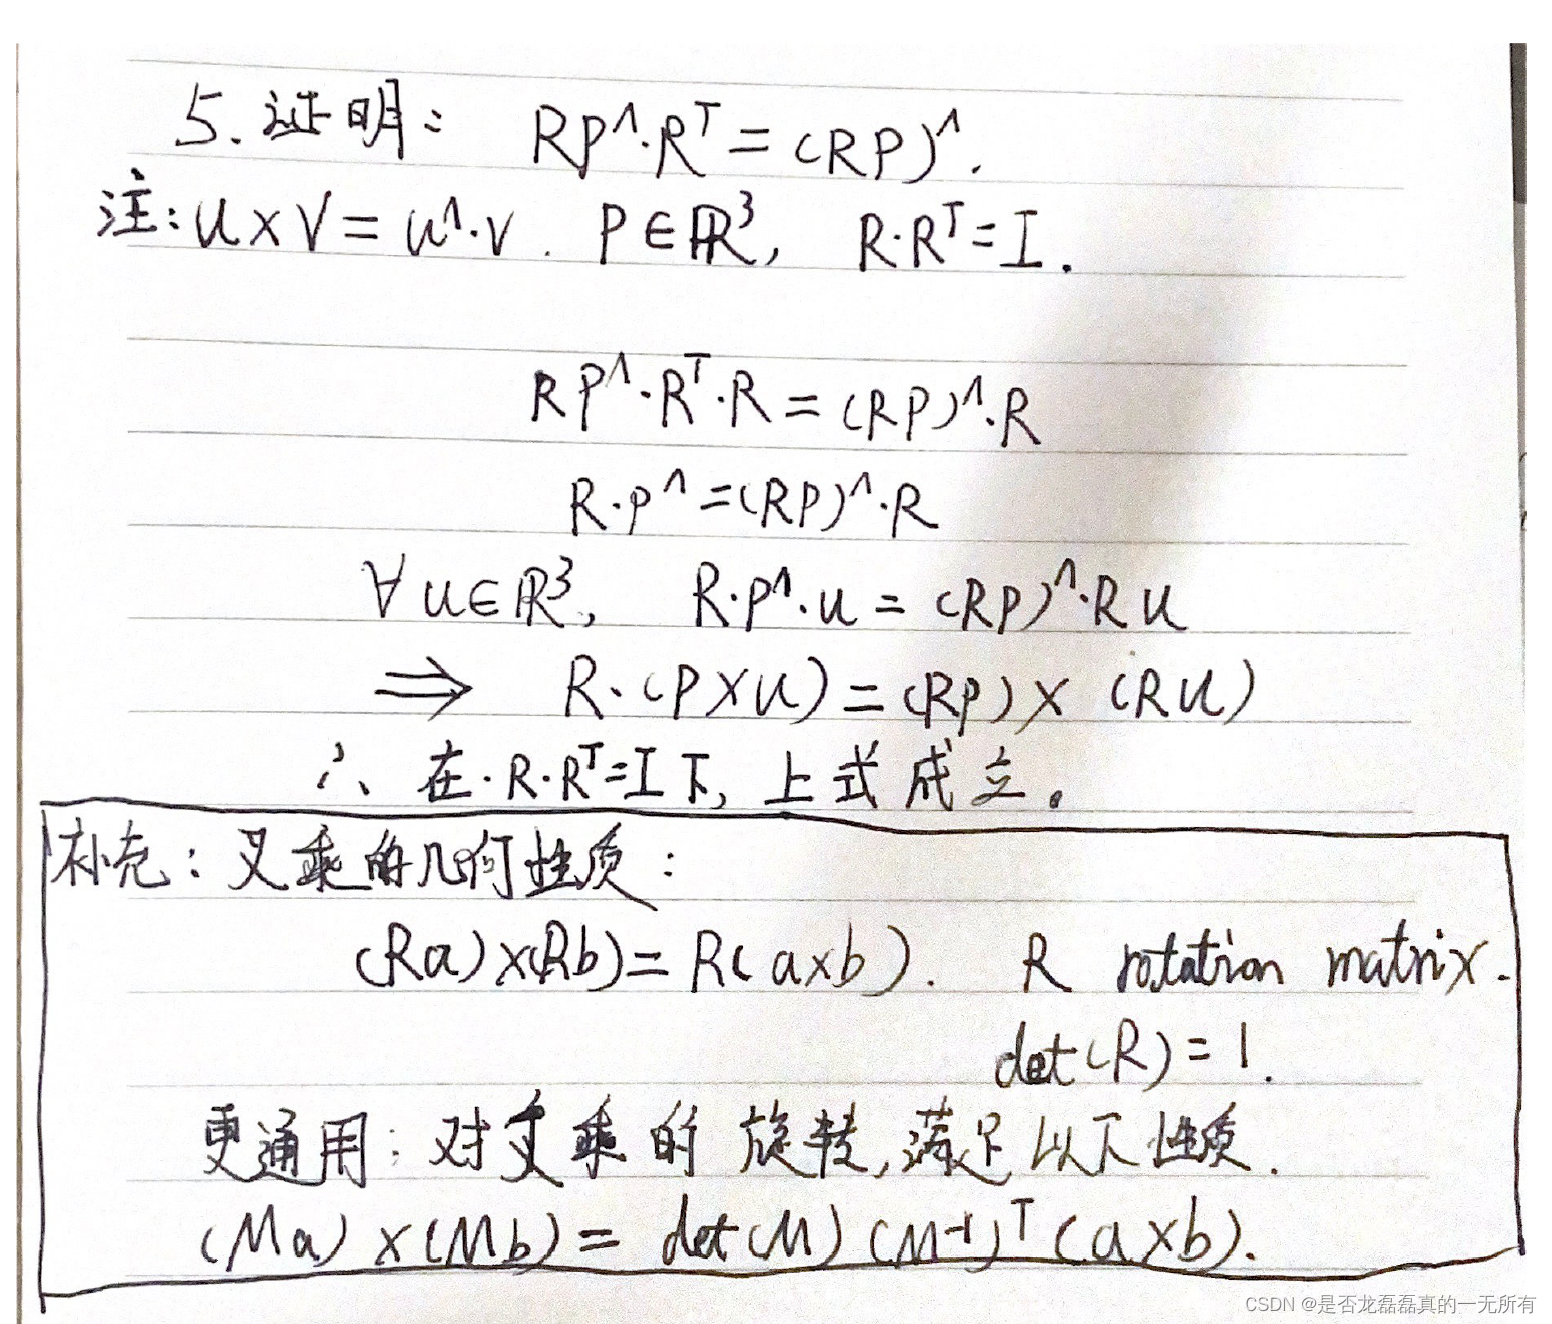 5. 证明: RP^∧·R^T = (RP)^∧.
注: u×v = u^∧·v. P∈ℝ^3, R·R^T=I.
RP^∧·R^T·R = (RP)^∧·R
R·P^∧ = (RP)^∧·R
∀u∈ℝ^3, R·P^∧·u = (RP)^∧·Ru
⇒ R·(P×u) = (RP)×(Ru)
∴ 在·R·R^T=I下, 上式成立。
补充: 叉乘的几何性质:
(Ra)×(Rb) = R(a×b). R rotation matrix.
det(R)=1.
更通用: 对叉乘的旋转, 满足以下性质.
(Ma)×(Mb) = det(M)(M^-1)^T(a×b).
CSDN @是否龙磊磊真的一无所有